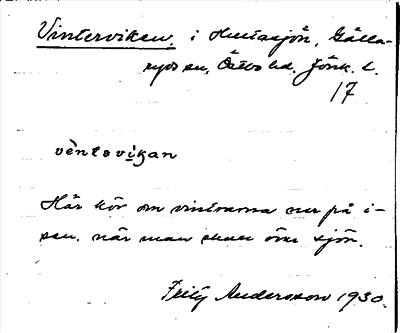 Vinterviken, i Hultasjön, Gälla-
ryds sn, Östbo hd, Jönk. l.
17
vèntəvikan
Här kör om vintrarna ner på i-
sen, när man skall över sjön.
Fritz Andersson 1930.